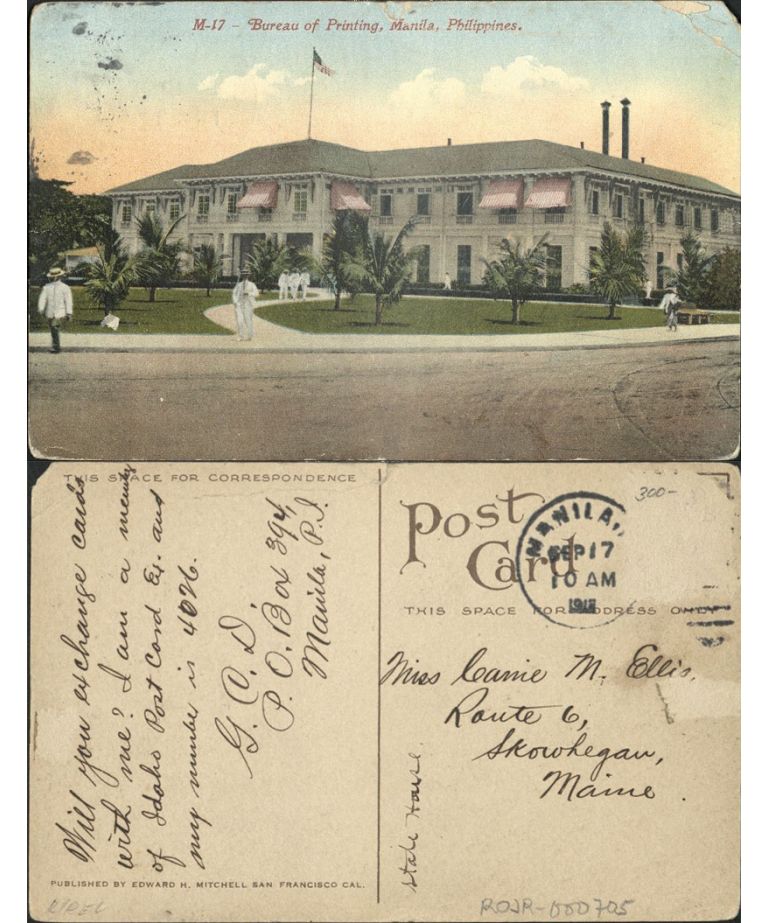 M-17 - Bureau of Printing, Manila, Philippines.
THIS SPACE FOR CORRESPONDENCE
Will you exchange cards
with me? I am a member
of Idaho Post Card Ex. and
my number is 4026.
G. C. D.
P. O. Box 394,
Manila, P.I.
PUBLISHED BY EDWARD H. MITCHELL SAN FRANCISCO CAL.
300-
Post
Card
MANILA,
SEP 17
10 AM
THIS SPACE FOR ADDRESS ONLY
Miss Carrie M. Ellis,
Route 6,
Skowhegan,
Maine.
State House.
ROJR-000705